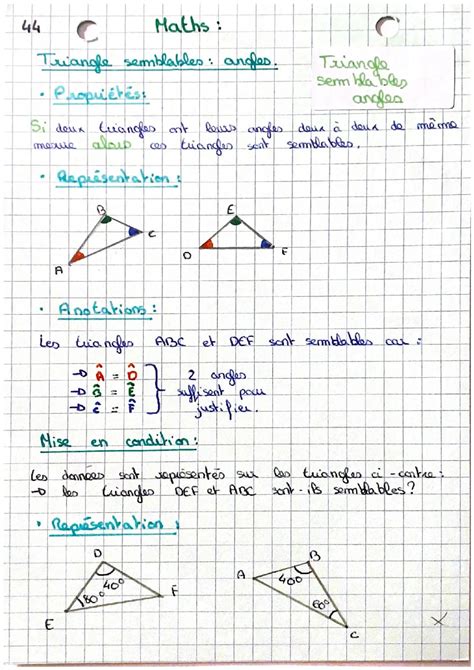 44 Maths :
Triangle semblables : angles.
Triangle
semblables
angles
• Propriétés:
Si deux triangles ont leurs angles deux à deux de même
mesure alors ces triangles sont semblables.
• Représentation :
B
C
A
E
D
F
• Anotations :
Les triangles ABC et DEF sont semblables car :
→ Â = D̂
→ B̂ = Ê
→ Ĉ = F̂
2 angles
suffisent pour
justifier.
Mise en condition :
Les données sont représentés sur les triangles ci-contre :
→ les triangles DEF et ABC sont-ils semblables ?
• Représentation :
D
40°
80°
F
E
B
A
40°
60°
C